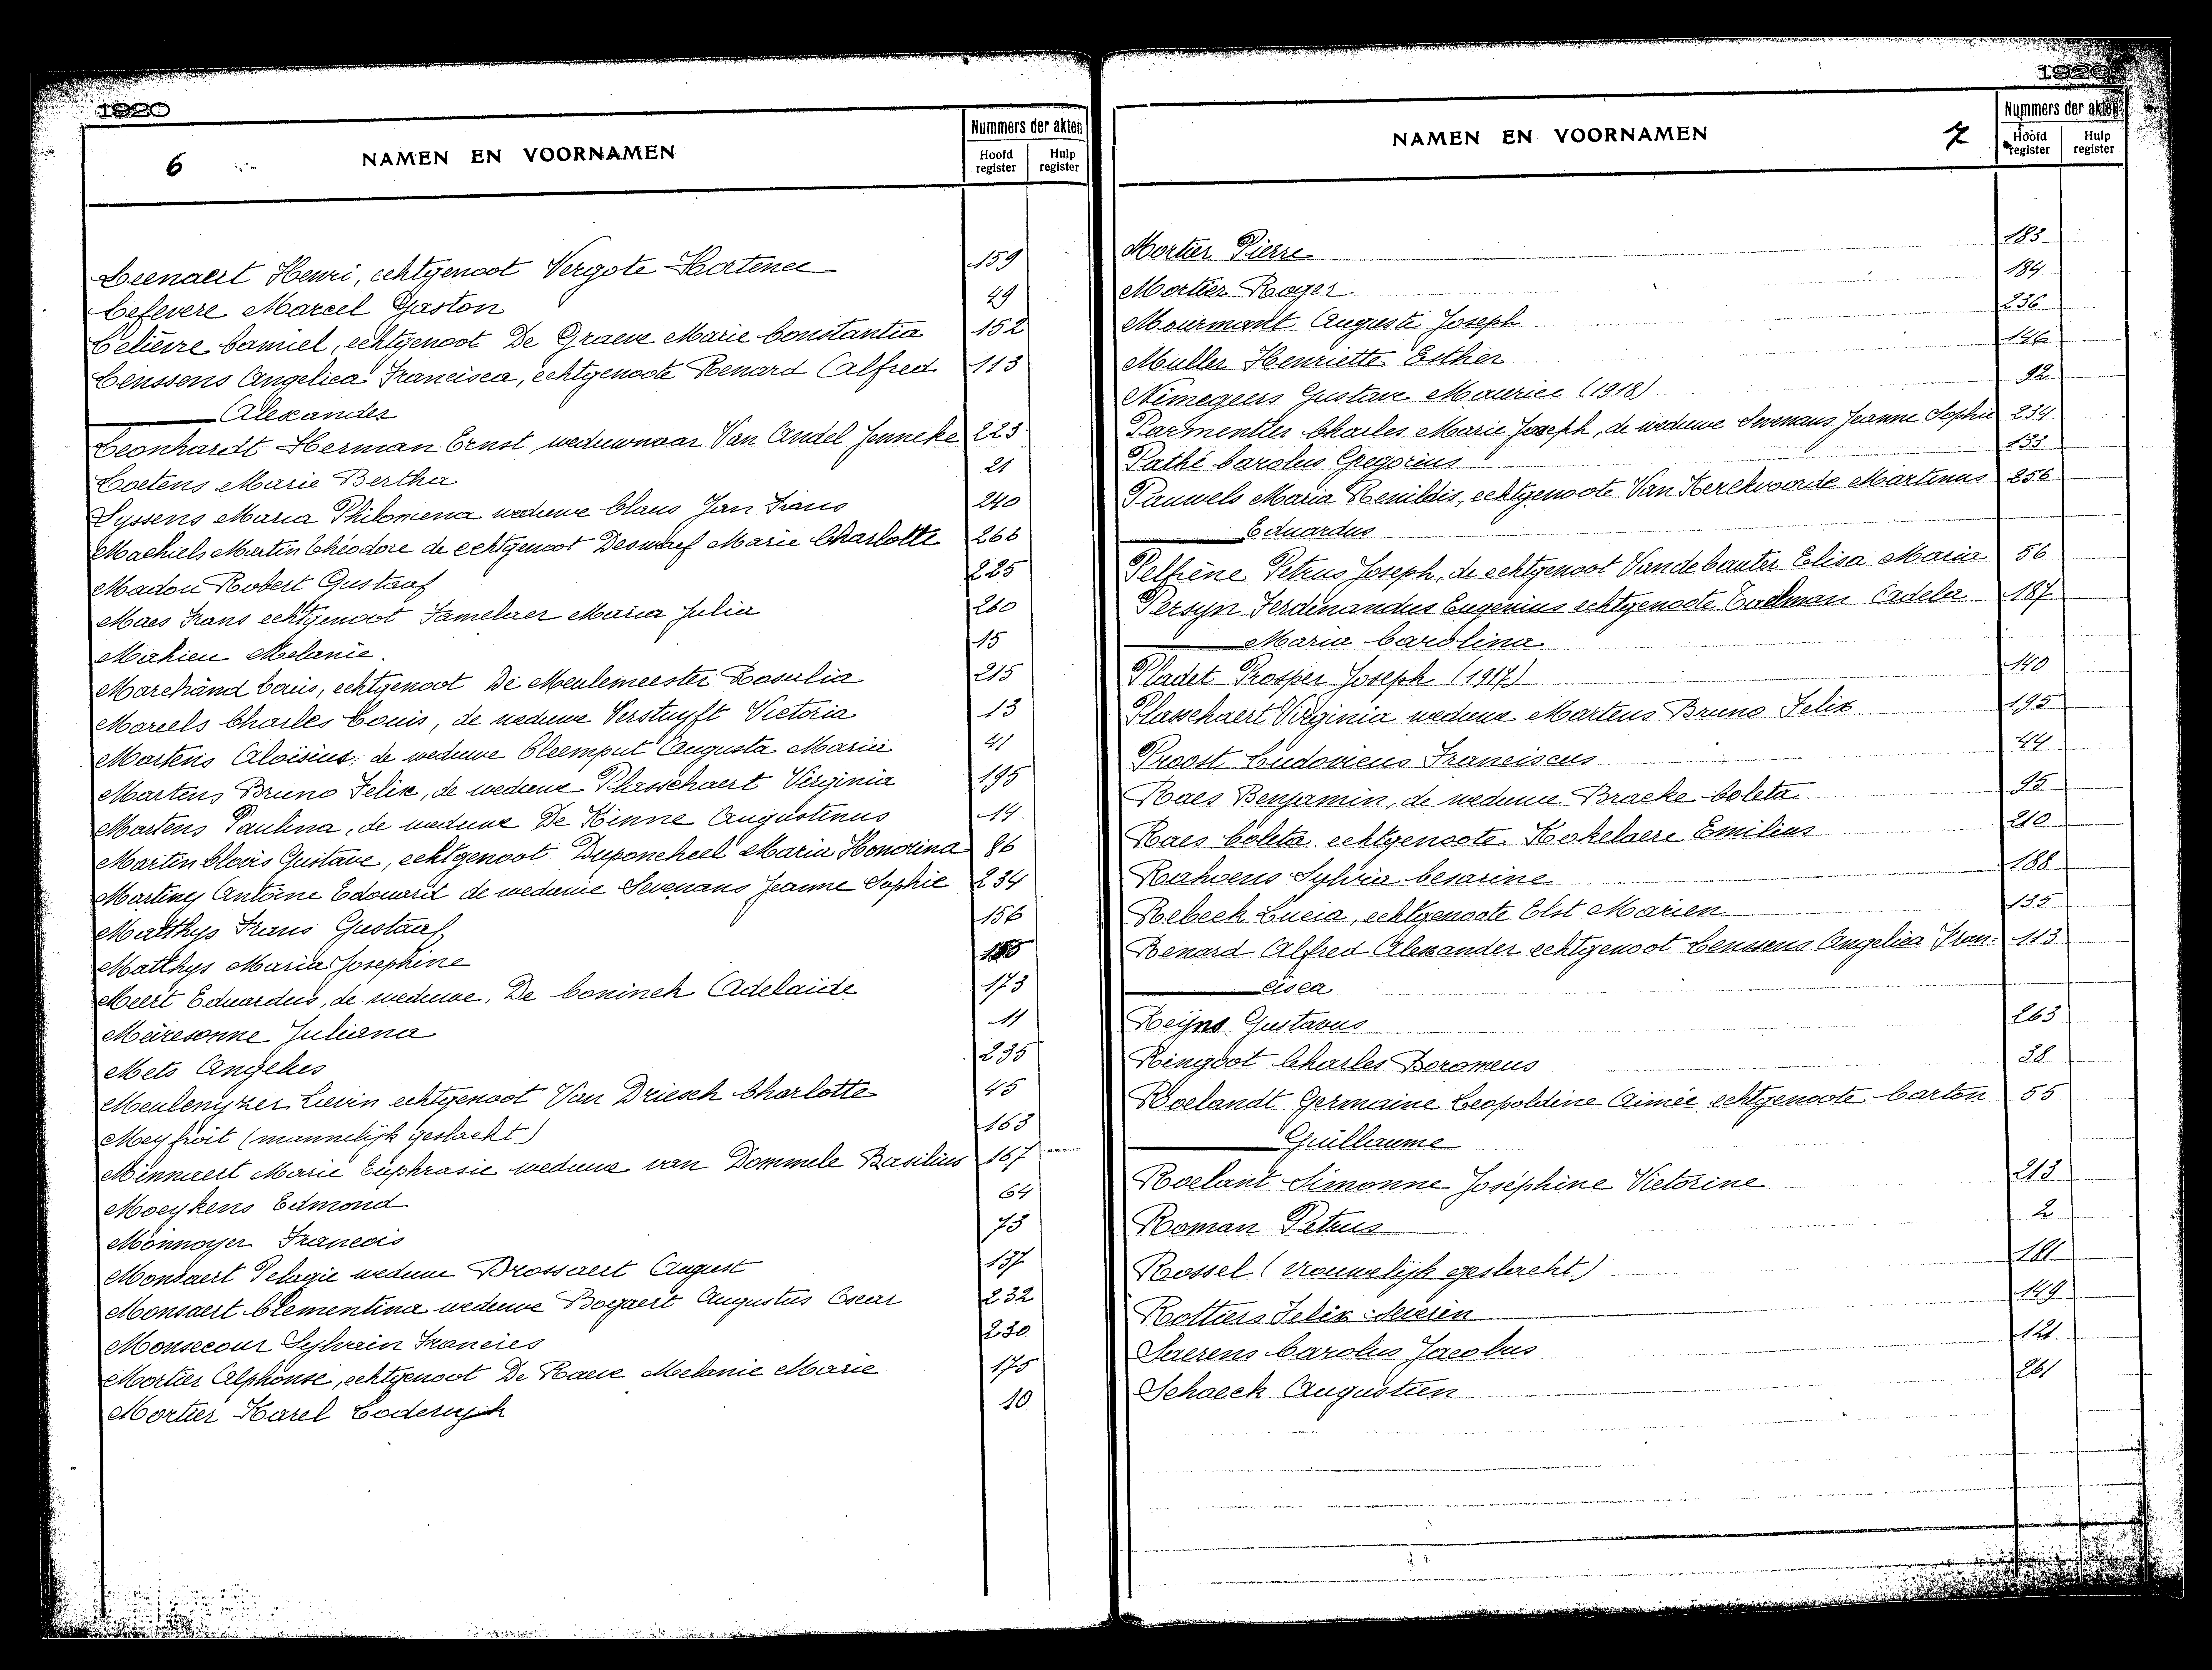 1920
6
NAMEN EN VOORNAMEN
Nummers der akten
Hoofd register
Hulp register
Leenaert Henri, echtgenoot Vergote Hortence 159
Lefevere Marcel Gaston 49
Lelièvre Camiel, echtgenoot De Graeve Marie Constantia 152
Lenssens Angelica Francisca, echtgenoote Renard Alfred 113
Alexander
Leonhardt Herman Ernst, weduwnaar Van Andel Jenneke 223
Loetens Marie Bertha 21
Lyssens Maria Philomena weduwe Claus Jan Frans 240
Machiels Martin Théodore de echtgenoot Deswaef Marie Charlotte 266
Madou Robert Gustaaf 225
Maes Frans echtgenoot Famelaer Maria Julia 260
Mahieu Melanie. 15
Marchand Louis, echtgenoot De Meulemeester Rosalia 215
Mareels Charles Louis, de weduwe Verstuyft Victoria 13
Martens Aloïsius, de weduwe Cleemput Augusta Maria 41
Martens Bruno Felix, de weduwe Plasschaert Virginia 195
Martens Paulina, de weduwe De Kinne Augustinus 14
Martin Clovis Gustave, echtgenoot Duponcheel Maria Honorina 86
Martiny Antoine Edouard de weduwe Sevenans Jeanne Sophie 234
Matthys Frans Gustaaf 156
Matthys Maria Josephine
Meert Eduardus, de weduwe, De Coninck Adelaïde 173
Meiresonne Juliana 11
Mets Angeles 235
Meulenyzer Lievin echtgenoot Van Driesch Charlotte 45
Meyfroit (mannelijk geslacht) 163
Minnaert Marie Euphrasie weduwe van Dommele Basilius 167
Moeykens Edmond 64
Monnoyer Francois 73
Monsaert Pelagie weduwe Brossaert August 137
Monsaert Clementina weduwe Bogaert Augustus Oscar 232
Monsecour Sylvain Francies 230
Mortier Alphonse, echtgenoot De Raeve Melanie Marie 175
Mortier Karel Loderyk 10
1920
NAMEN EN VOORNAMEN
7
Nummers der akten
Hoofd register
Hulp register
Mortier Pierre 183
Mortier Roger 184
Mourmant Auguste Joseph 236
Muller Henriette Esther 146
Nimegeers Gustave Maurice (1918) 92
Parmentier Charles Marie Joseph, de weduwe Sevenans Jeanne Sophie 234
Pathé Carolus Gregorius 133
Pauwels Maria Renildis, echtgenoote Van Kerckvoorde Martinus 256
Eduardus
Pelfrène Petrus Joseph, de echtgenoot Vandecauter Elisa Maria 56
Persyn Ferdinandus Eugenius echtgenoote Eeckman Adela 187
Maria Carolina
Pladet Prosper Joseph (1917) 140
Plasschaert Virginia weduwe Martens Bruno Felix 195
Proost Ludovicus Franciscus 44
Raes Benjamin, de weduwe Bracke Coleta 95
Raes Coleta echtgenoote Kokelaere Emilius 210
Rahoens Sylvia Cesarine 188
Rebeck Lucia, echtgenoote Elst Marien 135
Renard Alfred Alexander echtgenoot Lenssens Angelica Fran- 113
cisca
Reijns Gustavus 263
Ringoot Charles Boromeus 38
Roelandt Germaine Leopoldine Aimée echtgenoote Carton 55
Guillaume
Roelant Simonne Joséphine Victorine 213
Roman Petrus 2
Rossel (vrouwelijk geslacht) 181
Rottiers Felix Severin 149
Saerens Carolus Jacobus 121
Schoeck Augustien 261